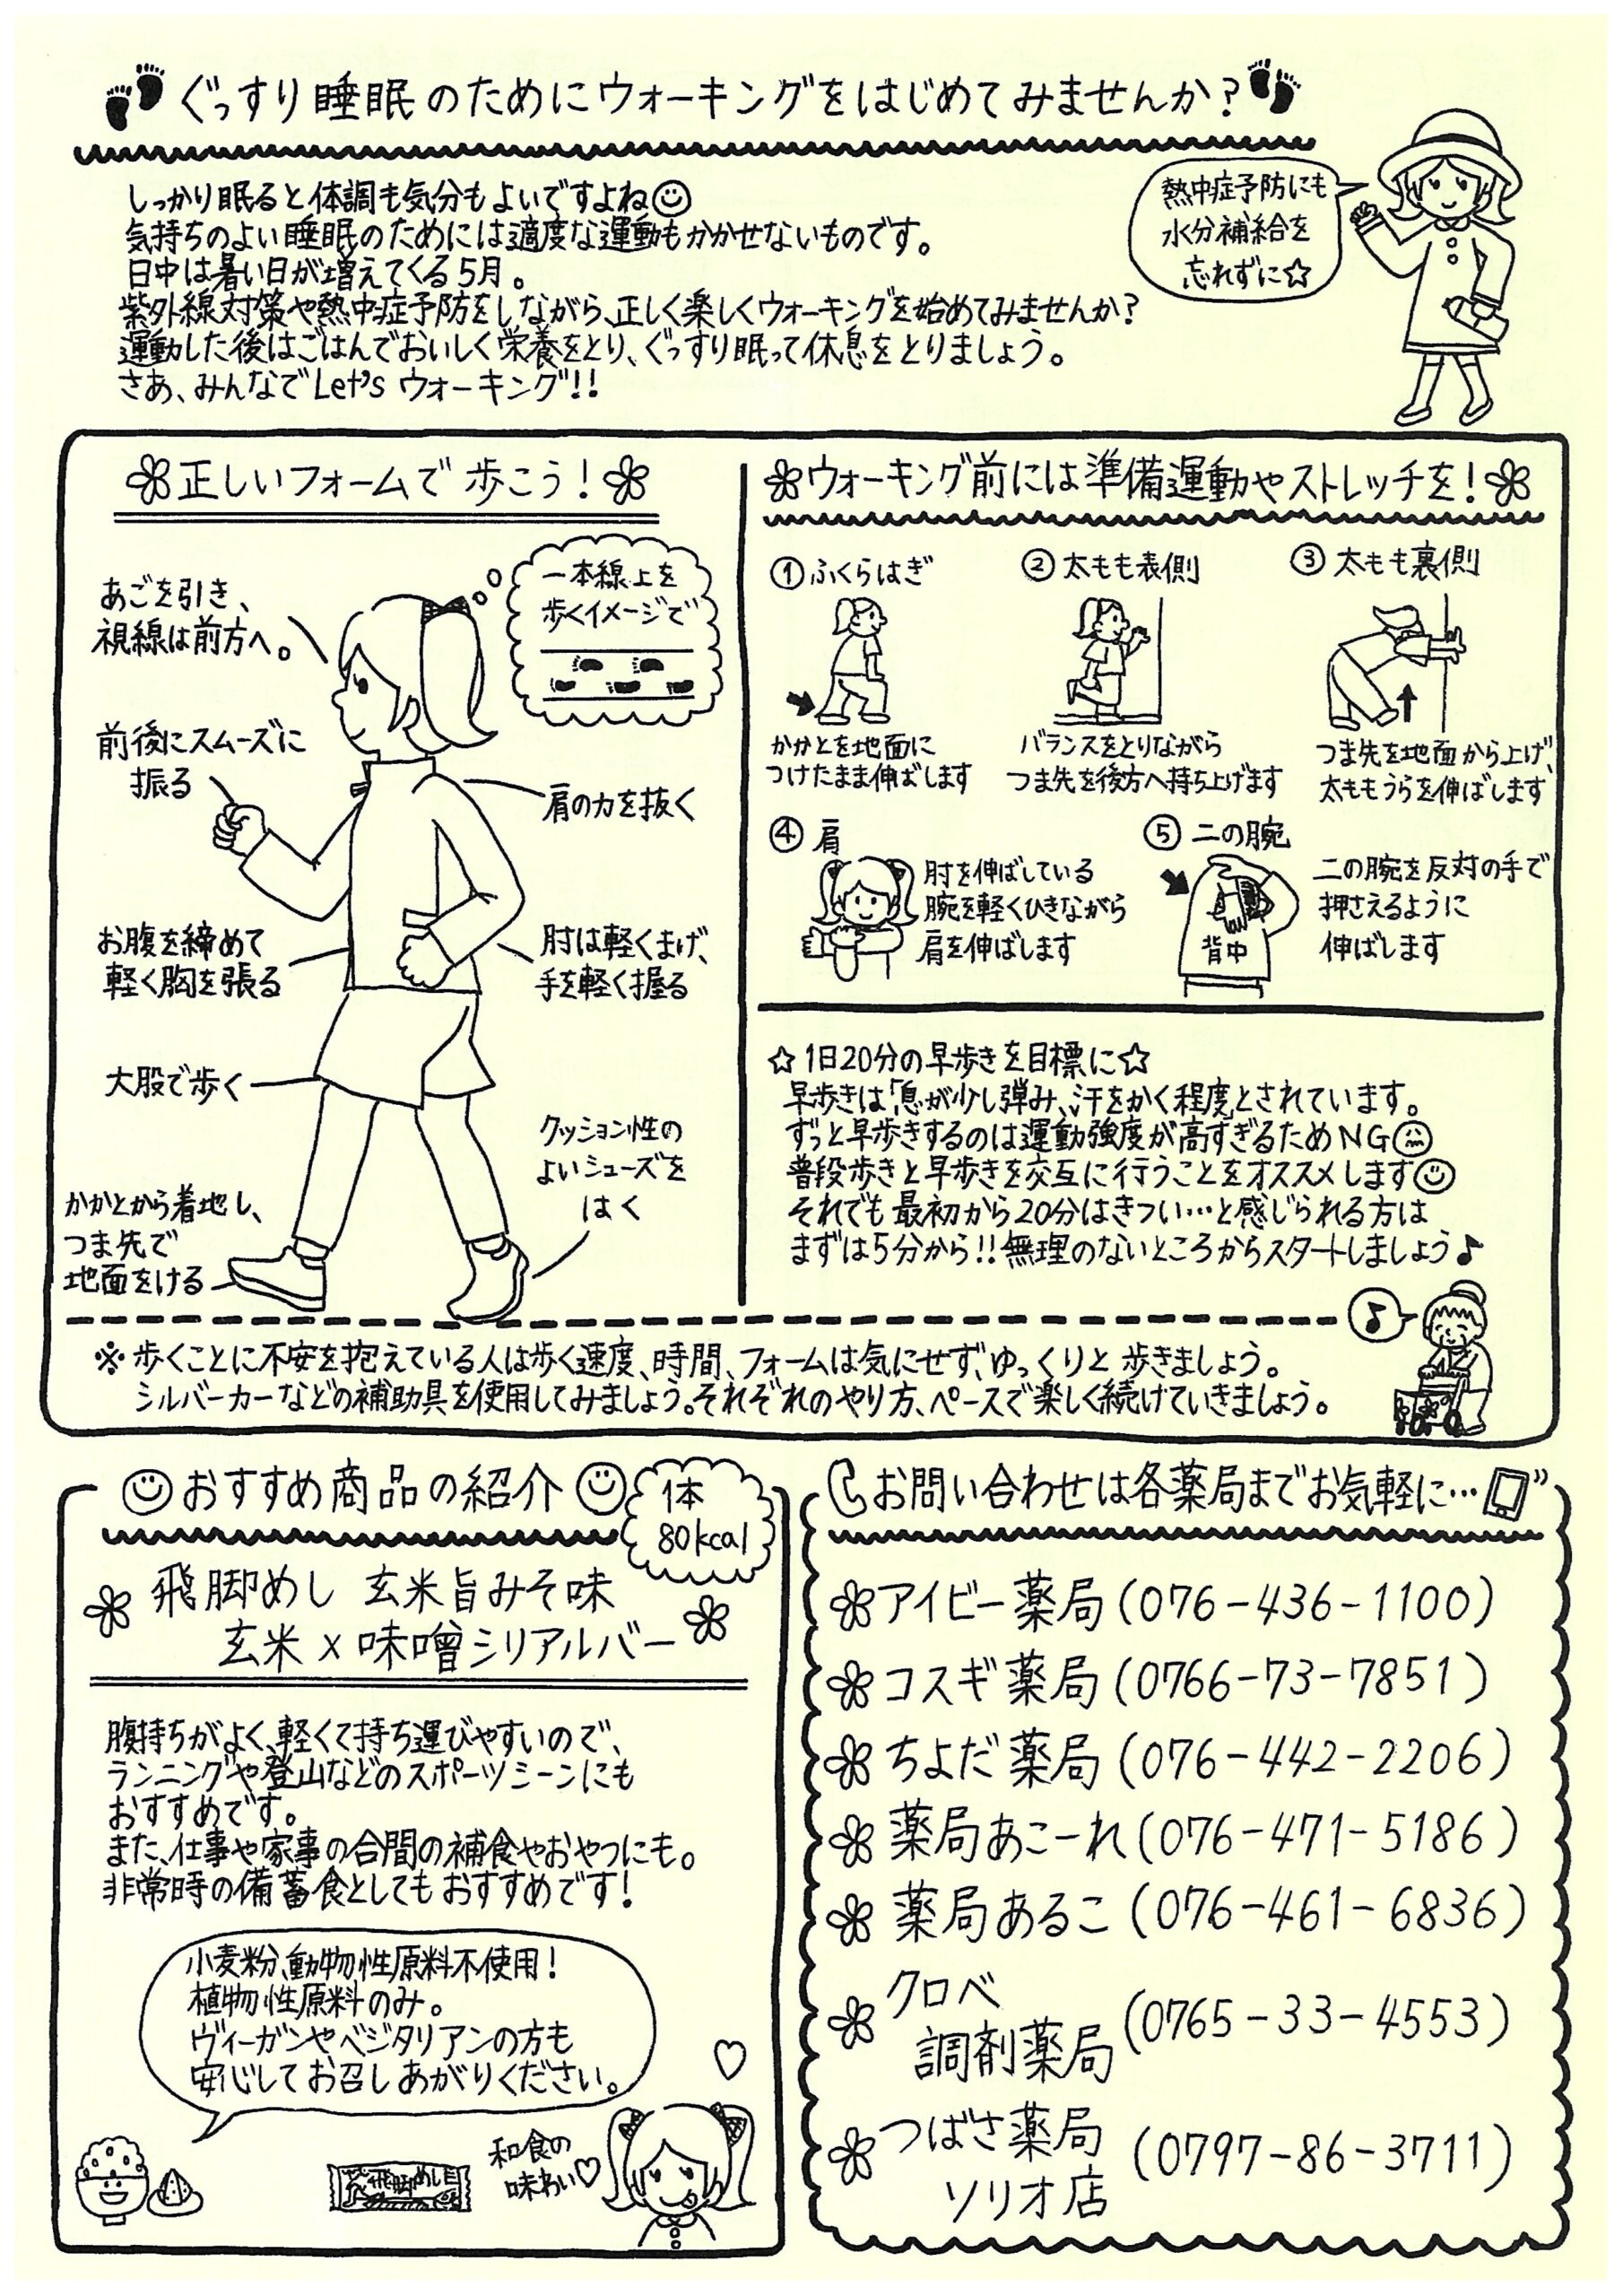 ぐっすり睡眠のためにウォーキングをはじめてみませんか?
しっかり眠ると体調も気分もよいですよね
気持ちのよい睡眠のためには適度な運動もかかせないものです。
日中は暑い日が増えてくる5月。
紫外線対策や熱中症予防をしながら、正しく楽しくウォーキングを始めてみませんか?
運動した後はごはんでおいしく栄養をとり、ぐっすり眠って休息をとりましょう。
さあ、みんなでLet's ウォーキング!!
熱中症予防にも
水分補給を
忘れずに☆
正しいフォームで歩こう!
あごを引き、
視線は前方へ。
一本線上を
歩くイメージで
前後にスムーズに
振る
肩の力を抜く
お腹を締めて
軽く胸を張る
肘は軽くまげ、
手を軽く握る
大股で歩く
クッション性の
よいシューズを
はく
かかとから着地し、
つま先で
地面をける
ウォーキング前には準備運動やストレッチを!
①ふくらはぎ
かかとを地面に
つけたまま伸ばします
②太もも表側
バランスをとりながら
つま先を後方へ持ち上げます
③太もも裏側
つま先を地面から上げ、
太ももうらを伸ばします
④肩
肘を伸ばしている
腕を軽くひきながら
肩を伸ばします
⑤二の腕
背中
二の腕を反対の手で
押さえるように
伸ばします
☆1日20分の早歩きを目標に☆
早歩きは「息が少し弾み、汗をかく程度」とされています。
ずっと早歩きするのは運動強度が高すぎるためNG
普段歩きと早歩きを交互に行うことをオススメします
それでも最初から20分はきつい…と感じられる方は
まずは5分から!!無理のないところからスタートしましょう♪
♪
※歩くことに不安を抱えている人は歩く速度、時間、フォームは気にせず、ゆっくりと歩きましょう。
シルバーカーなどの補助具を使用してみましょう。それぞれのやり方、ペースで楽しく続けていきましょう。
おすすめ商品の紹介
1本
80kcal
飛脚めし 玄米旨みそ味
玄米×味噌シリアルバー
腹持ちがよく、軽くて持ち運びやすいので、
ランニングや登山などのスポーツシーンにも
おすすめです。
また、仕事や家事の合間の補食やおやつにも。
非常時の備蓄食としてもおすすめです!
小麦粉、動物性原料不使用!
植物性原料のみ。
ヴィーガンやベジタリアンの方も
安心してお召しあがりください。
飛脚めし
和食の
味わい♡
お問い合わせは各薬局までお気軽に…
アイビー薬局(076-436-1100)
コスギ薬局(0766-73-7851)
ちよだ薬局(076-442-2206)
薬局あこーれ(076-471-5186)
薬局あるこ(076-461-6836)
クロベ
調剤薬局(0765-33-4553)
つばさ薬局
ソリオ店(0797-86-3711)